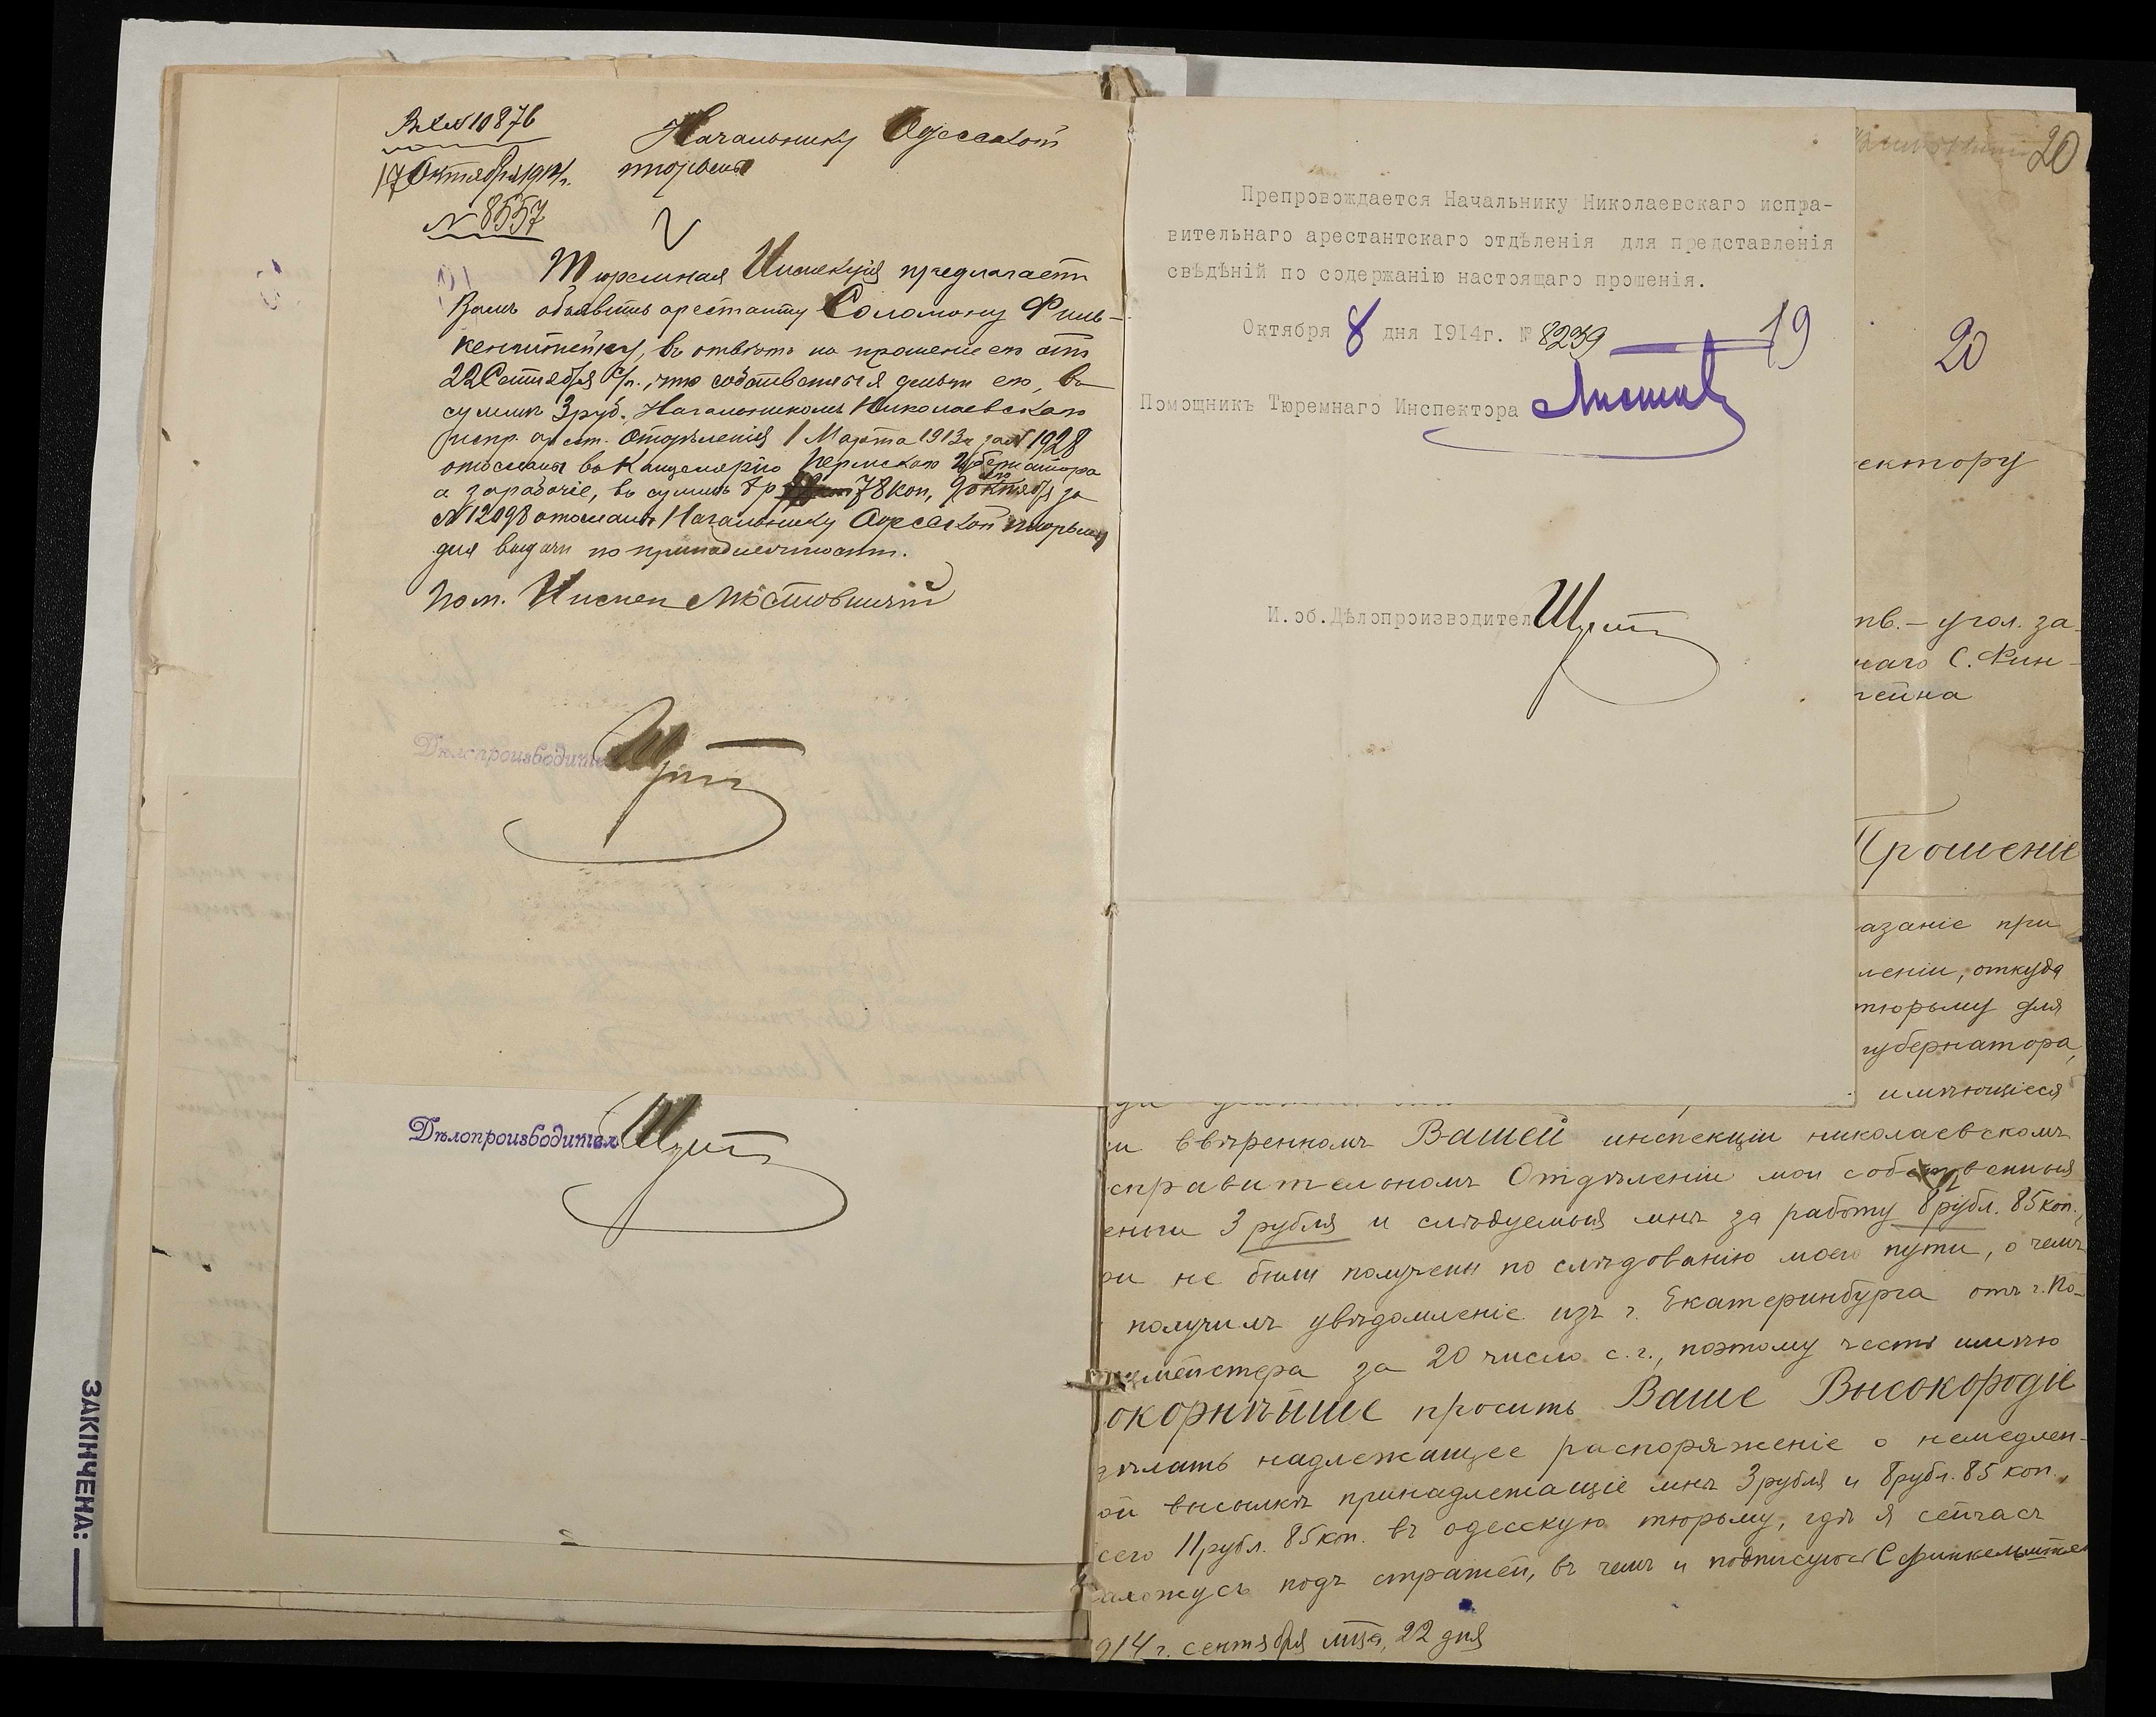 Вх № 10876
17 Октября 1914 г.
№ 8557
Начальнику Одесской
тюрьмы
Тюремная Инспекція предлагаетъ
Вамъ объявить арестанту Соломону Финь-
кенштейну, въ отвѣтъ на прошеніе его отъ
22 Сентября с/г., что собственныя деньги его, въ
суммѣ 3 руб. Начальникомъ Николаевскаго
испр. арест. Отдѣленія 1 Марта 1913 г. за № 1928
отосланы въ Канцелярію Пермскаго Губернатора
а заработіе, въ суммѣ 8 р 78 коп, 9 сего октября за
№ 12098 отосланы Начальнику Одесской тюрьмы
для выдачи по принадлежности.
Пом. Инспек
Дѣлопроизводитель
Дѣлопроизводител
ЗАКІНЧЕНА:
Препровождается Начальнику Николаевскаго испра-
вительнаго арестантскаго отдѣленія для представленія
свѣдѣній по содержанію настоящаго прошенія.
Октября 8 дня 1914г. № 8239
19
Помощникъ Тюремнаго Инспектора
И.об.Дѣлопроизводител
20
20
ектору
пв. – угол. за-
наго С. Фин-
тейна
Прошеніе
азаніе при
леніи, откуда
тюрьму для
губернатора,
имѣющіеся
ввѣренномъ Вашей инспекціи николаевскомъ
справительномъ Отдѣленіи мои собственныя
еньги 3 рубля и слѣдуемыя мнѣ за работу 8 рубл. 85 коп.,
ои не были получены по слѣдованію моего пути, о чемъ
получилъ увѣдомленіе изъ г. Екатеринбурга отъ г. По-
имейстера за 20 число с. г., поэтому честь имѣю
окорнѣйше просить Ваше Высокородіе
дѣлать надлежащее распоряженіе о немедлен-
ой высылкѣ принадлежащіе мнѣ 3 рубля и 8 рубл. 85 коп.,
сего 11 рубл. 85 коп. въ одесскую тюрьму, гдѣ я сейчасъ
ахожусь подъ стражей, въ чемъ и подписуюсь С Финкельштей
914 г. сентября мца, 22 дня